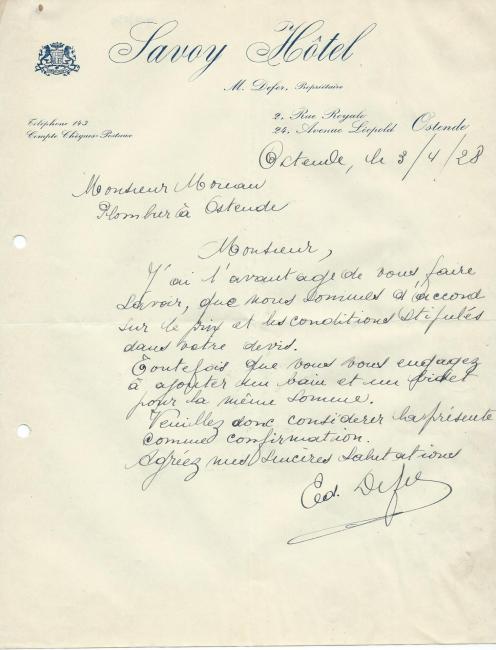 Savoy Hôtel
M. Defer, Propriétaire
Téléphone 143
Compte Chèques-Postaux
2, Rue Royale
24, Avenue Léopold Ostende
Ostende, le 3/4/28
Monsieur Moreau
Plombier à Ostende
Monsieur,
J'ai l'avantage de vous faire
savoir, que nous sommes d'accord
sur le prix et les conditions stipulés
dans votre devis.
Toutefois que vous vous engagez
à ajouter un bain et un bidet
pour la même somme.
Veuillez donc considérer la présente
comme confirmation.
Agréez mes sincères salutations
Ed. Defer